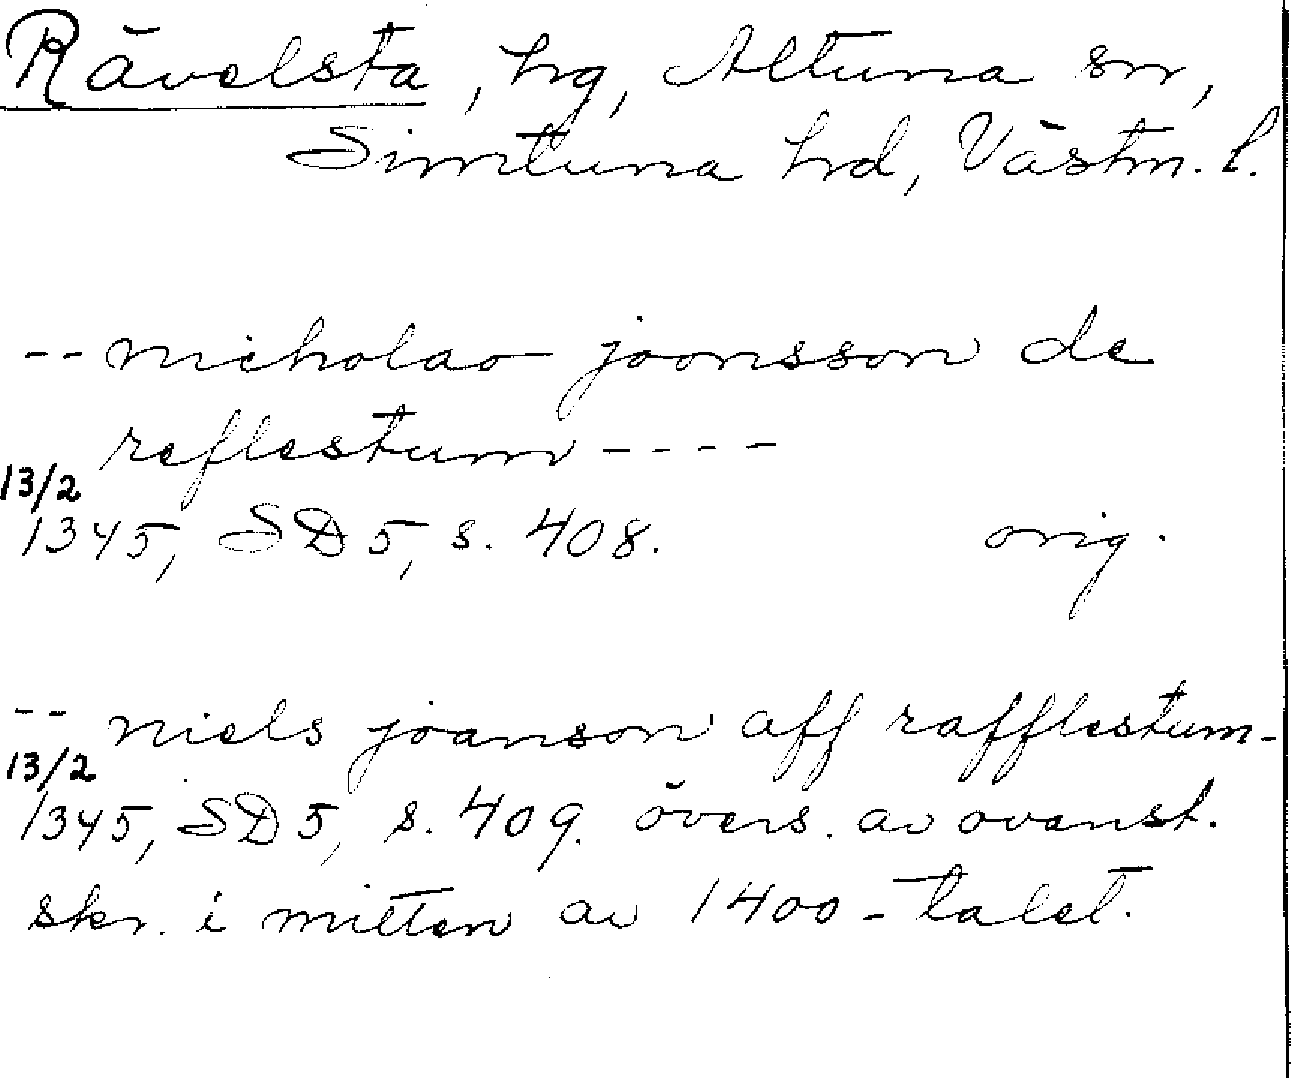 Rävelsta, hg, Altuna sn,
Simtuna hd, Västm. l.
-- nicholao joonsson de
reflestum ----
13/2
1345, SD 5, s. 408. orig.
-- niels joanson aff rafflestum-
13/2
1345, SD 5, s. 409. övers. av ovanst.
skr. i mitten av 1400-talet.